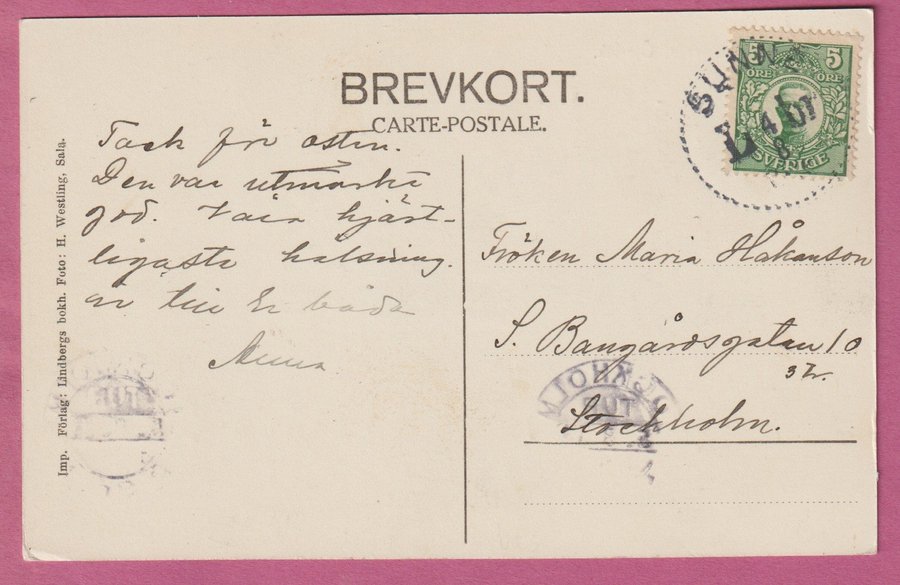 BREVKORT.
CARTE-POSTALE.
Tack för osten.
Den var utmärkt
god. Våra hjärt-
ligaste hälsning.
ar till Er båda
Anna
Imp. Förlag: Lindbergs bokh. Foto: H. Westling, Sala.
5 5
ÖRE ÖRE
SVERIGE
Fröken Maria Håkanson
S. Bangårdsgatan 10
3 tr.
Stockholm.